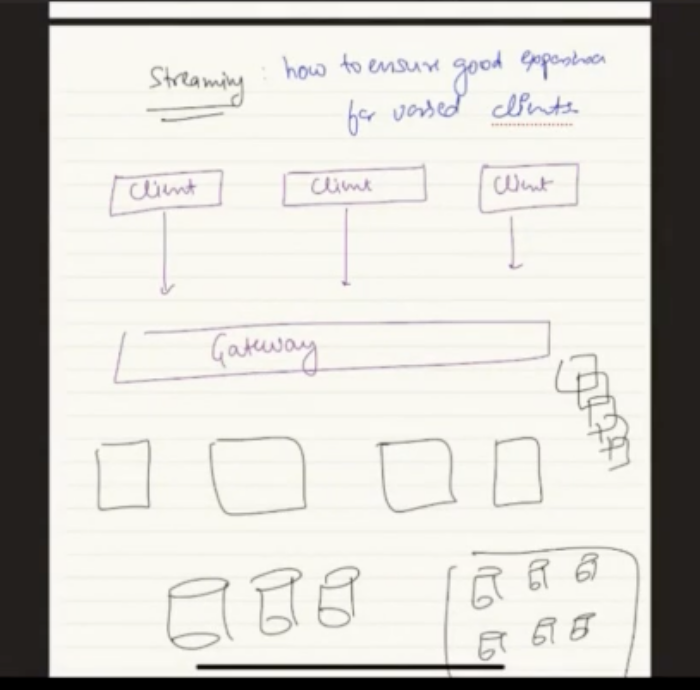 Streaming : how to ensure good
for varied clients
Client Client Client
Gateway